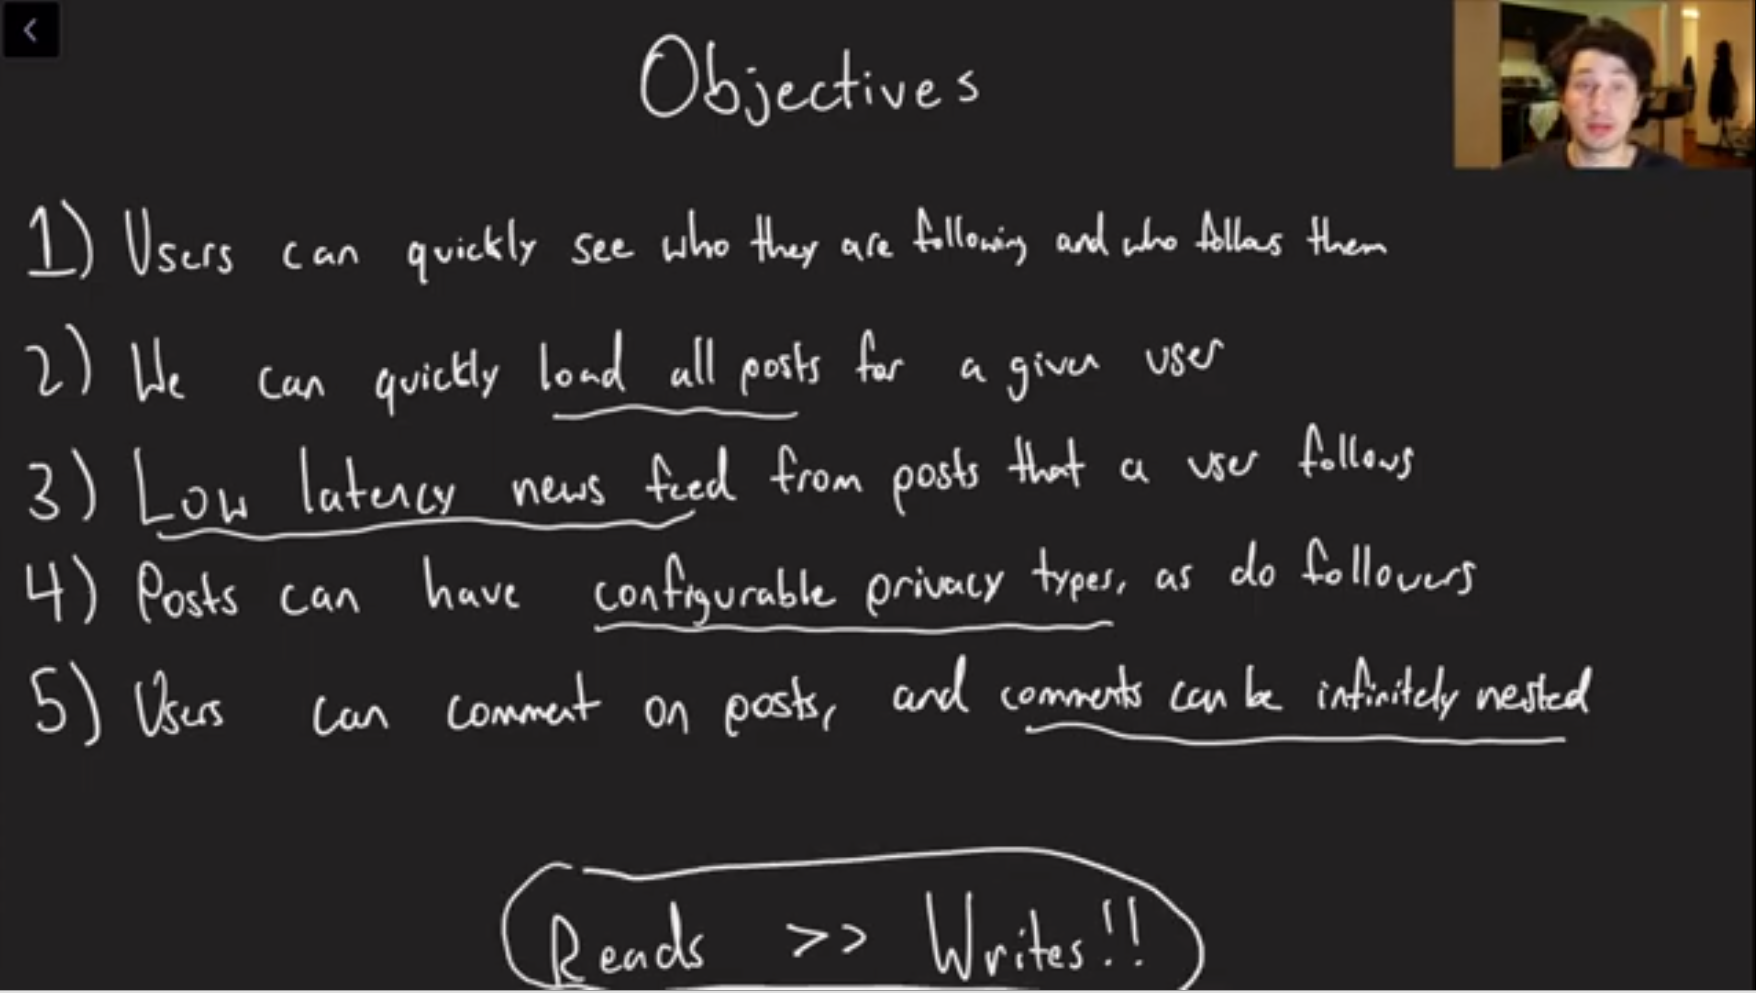 Objectives
1) Users can quickly see who they are following and who follows them
2) We can quickly load all posts for a given user
3) Low latency news feed from posts that a user follows
4) Posts can have configurable privacy types, as do followers
5) Users can comment on posts, and comments can be infinitely nested
Reads >> Writes!!